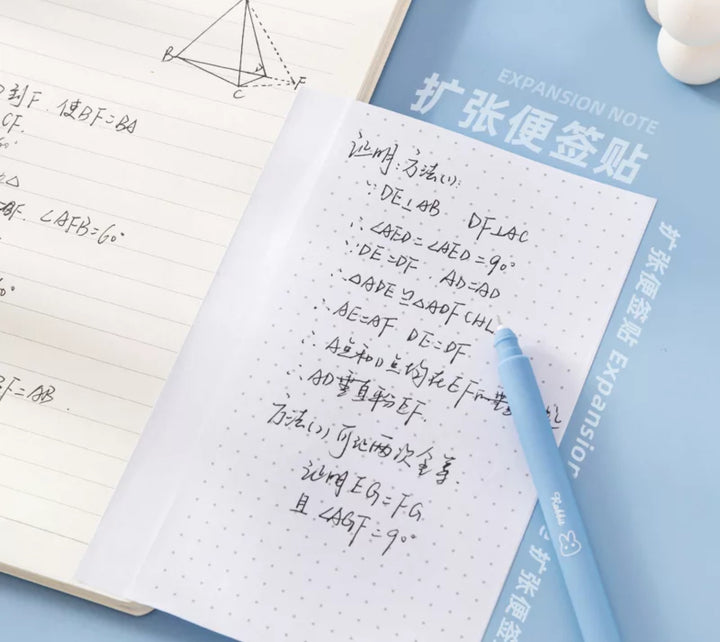 B
C
F
到F. 使BF=BA
CF.
60°
△
BF. ∠AFB=60°
BF=AB.
EXPANSION NOTE
扩张便签贴
证明:方法(1):
∵DE⊥AB DF⊥AC
∴∠AED=∠AED=90°
∵DE=DF AD=AD
∴△ADE≌△ADF(HL
∴AE=AF DE=DF
∴A点和D点均在EF的垂
∴AD垂直平分EF.
方法(2)可证两次全等.
证明EG=FG
且∠AGF=90°
扩张便签贴 Expansion
扩张便签
Rabbit